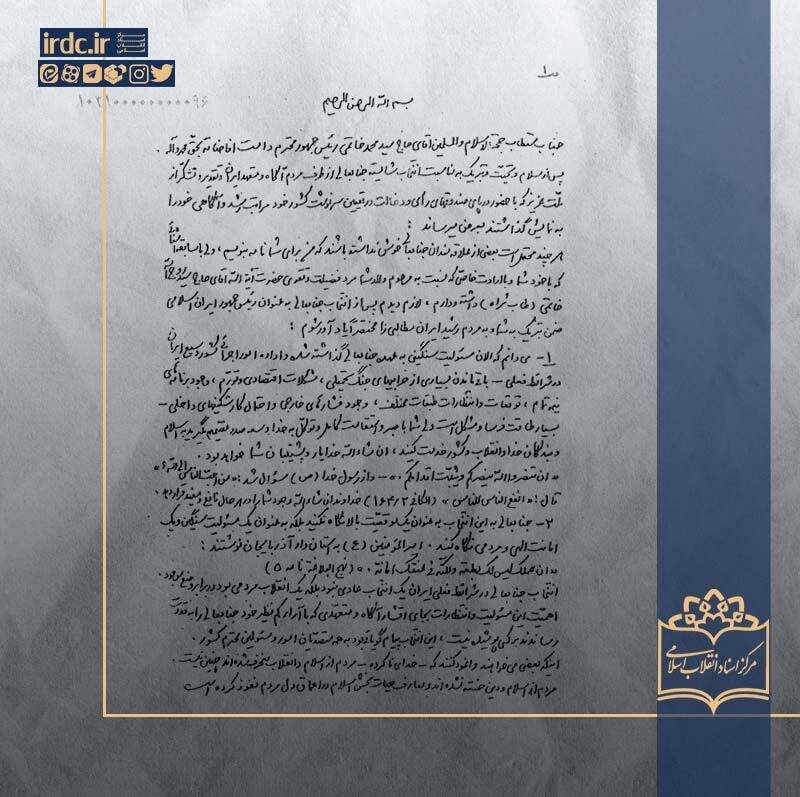 irdc.ir
مرکز اسناد انقلاب اسلامی
ص ۱
۱۰۲۱۰۰۰۰۰۰۰۰۰۰۹۶
بسم الله الرحمن الرحیم
جناب مستطاب حجة الاسلام والمسلمین آقای حاج سید محمد خاتمی رئیس جمهور محترم دامت افاضاته بحق محمد وآله
پس از سلام و تحیت و تبریک به مناسبت انتخاب شایسته جنابعالی از طرف مردم آگاه و متعهد ایران و تقدیر و تشکر از
ملت عزیز که با حضور در پای صندوقهای رأی و دخالت در تعیین سرنوشت کشور خود مراتب رشد و آگاهی خود را
به نمایش گذاشتند بعرض میرساند :
هر چند محتمل است بعضی از علاقه مندان جنابعالی خوش نداشته باشند که من برای شما نامه بنویسم ، ولی با سابقه آشنائی
که با خود شما و با ارادت خاصی که نسبت به مرحوم والد شما مرد فضیلت و تقوی حضرت آیة الله آقای حاج سید روح الله
خاتمی (طاب ثراه) داشته و دارم ، لازم دیدم پس از انتخاب جنابعالی به عنوان رئیس جمهور ایران اسلامی
ضمن تبریک به شما و به مردم رشید ایران مطالبی را مختصراً یادآور شوم :
۱- می دانم که الان مسئولیت سنگینی به عهده جنابعالی گذاشته شده و اداره امور اجرائی کشور وسیع ایران
در شرائط فعلی - باقی ماندن بسیاری از خرابیهای جنگ تحمیلی ، مشکلات اقتصادی و تورم ، وجود برنامه های
نیمه تمام ، توقعات و انتظارات طبقات مختلف ، وجود فشارهای خارجی و احتمال کارشکنیهای داخلی -
بسیار طاقت فرسا و مشکل است ولی شما با صبر و استقامت کامل و توکل به خدا و سعه صدر تصمیم بگیرید به اسلام
و بندگان خدا و انقلاب و کشور خدمت کنید ، ان شاء الله خدا یار و پشتیبان شما خواهد بود .
« ان تنصروا الله ینصرکم و یثبت اقدامکم » - و از رسول خدا (ص) سؤال شد : « من احب الناس الی الله ؟ »
قال : « انفع الناس للناس » (الکافی ۲/۱۶۴) خداوند ان شاء الله وجود شما را در هر حال نافع و مفید قرار دهد .
۲- جنابعالی به این انتخاب به عنوان یک موقعیت بالا نگاه نکنید بلکه به عنوان یک مسئولیت سنگین و یک
امانت الهی و مردمی نگاه کنید . امیرالمؤمنین (ع) به استاندار آذربایجان نوشتند :
« و ان عملک لیس لک بطعمة ولکنه فی عنقک امانة » (نهج البلاغة نامه ۵)
انتخاب جنابعالی در شرائط فعلی ایران یک انتخاب عادی نبود بلکه یک انقلاب مردمی بود در برابر وضع موجود .
اهمیت این مسئولیت و انتظارات بجای اقشار آگاه و متعهدی که با آراء کم نظیر خود جنابعالی را به قدرت
رساندند بر کسی پوشیده نیست ، این انتخاب پیام گویائی بود به همه متصدیان امور و مسئولین محترم کشور .
اینکه بعضی می خواهند وانمود کنند که - خدای ناکرده - مردم از اسلام و انقلاب منحرف شده اند چنین نیست .
مردم از اسلام و دین خسته نشده اند و معارف حیات بخش اسلام در اعماق دل مردم نفوذ کرده است
مرکز اسناد انقلاب اسلامی